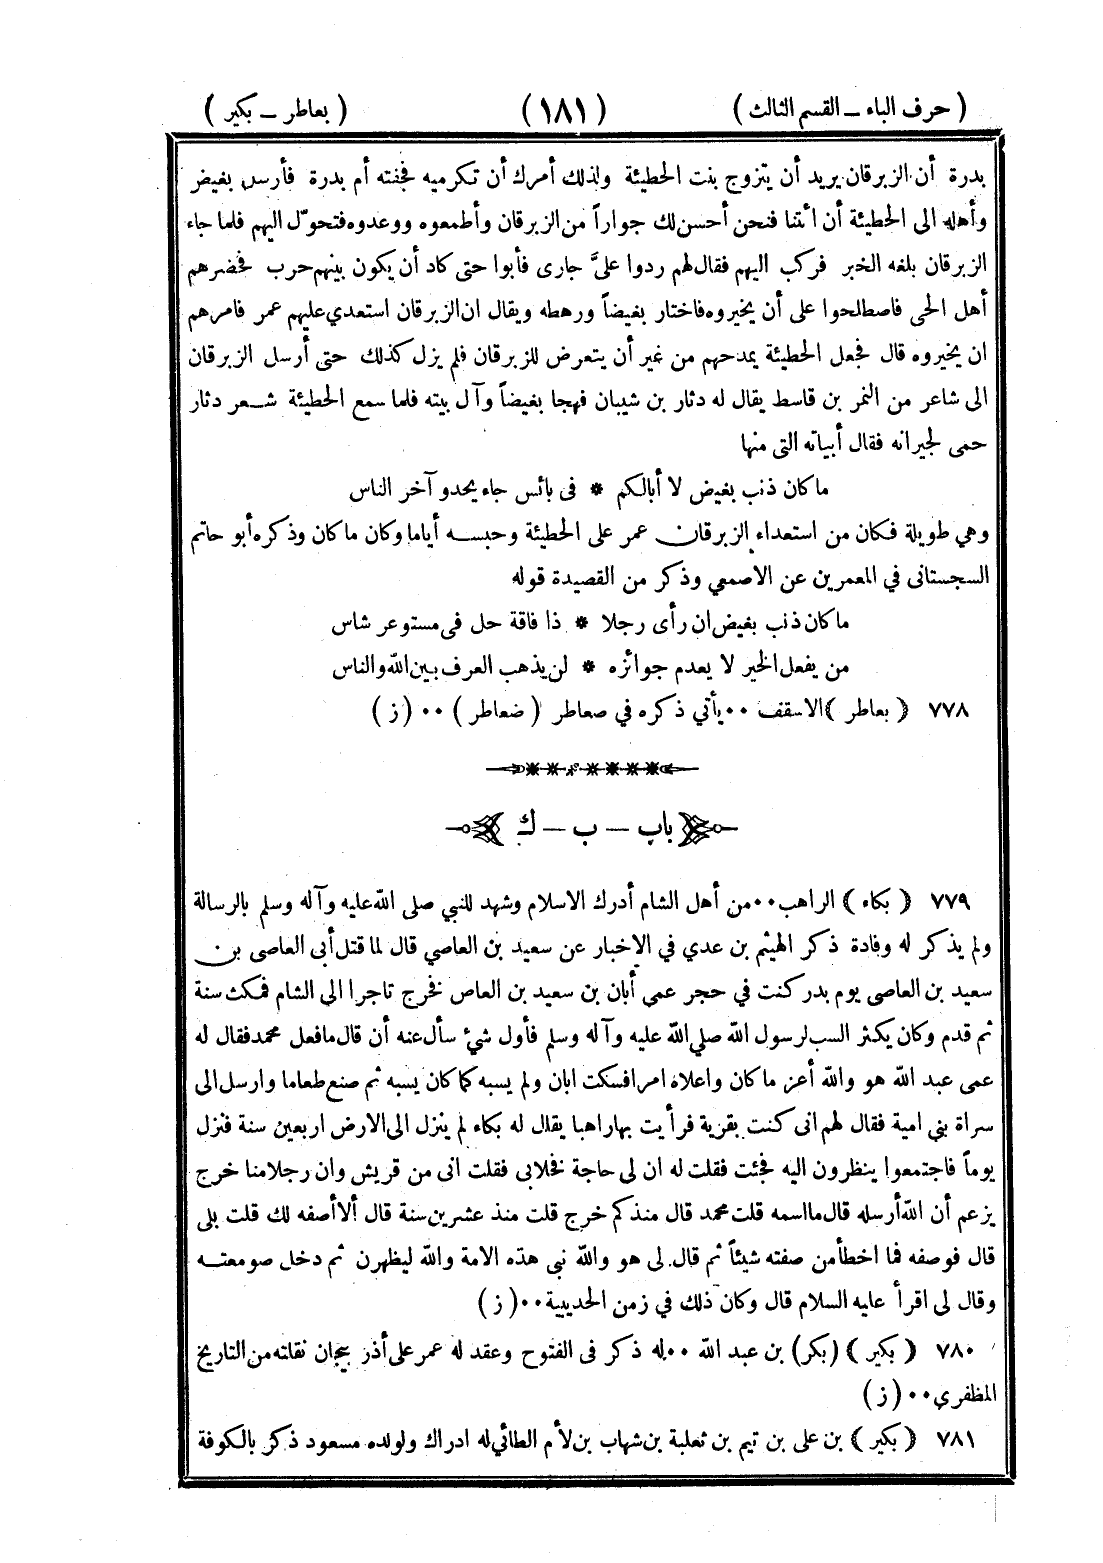 ( حرف الباء ــ القسم الثالث )
( ١٨١ )
( بعاطر ــ بكير )
بدرة أن الزبرقان يريد أن يتزوج بنت الحطيئة ولذلك أمرك أن تكرميه فجفته أم بدرة فأرسل بغيض
وأهله الى الحطيئة أن ائتنا فنحن أحسن لك جواراً من الزبرقان وأطمعوه ووعدوه فتحوّل اليهم فلما جاء
الزبرقان بلغه الخبر فركب اليهم فقال لهم ردوا علىَّ جارى فأبوا حتى كاد أن يكون بينهم حرب فحضرهم
أهل الحى فاصطلحوا على أن يخيروه فاختار بغيضاً ورهطه ويقال ان الزبرقان استعدي عليهم عمر فامرهم
ان يخيروه قال فجعل الحطيئة يمدحهم من غير أن يتعرض للزبرقان فلم يزل كذلك حتى أرسل الزبرقان
الى شاعر من النمر بن قاسط يقال له دثار بن شيبان فهجا بغيضاً وآل بيته فلما سمع الحطيئة شعر دثار
حمى لجيرانه فقال أبياته التى منها
ما كان ذنب بغيض لا أبالكم * فى بائس جاء يحدو آخر الناس
وهي طويلة فكان من استعداء الزبرقان عمر على الحطيئة وحبسه أياما وكان ما كان وذكره أبو حاتم
السجستانى في المعمرين عن الاصمعي وذكر من القصيدة قوله
ما كان ذنب بغيض ان رأى رجلا * ذا فاقة حل فى مستوعر شاس
من يفعل الخير لا يعدم جوائزه * لن يذهب العرف بين الله والناس
٧٧٨ ( بعاطر ) الاسقف ٠٠ يأتي ذكره في صعاطر ( ضعاطر ) ٠٠ ( ز )
باب ــ ب ــ ك
٧٧٩ ( بكاء ) الراهب ٠٠ من أهل الشام أدرك الاسلام وشهد للنبي صلى الله عليه وآله وسلم بالرسالة
ولم يذكر له وفادة ذكر الهيثم بن عدي في الاخبار عن سعيد بن العاصي قال لما قتل أبى العاصى بن
سعيد بن العاصى يوم بدر كنت في حجر عمي أبان بن سعيد بن العاص فخرج تاجرا الى الشام فمكث سنة
ثم قدم وكان يكثر السب لرسول الله صلي الله عليه وآله وسلم فأول شيء سأل عنه أن قال مافعل محمد فقال له
عمى عبد الله هو والله أعز ما كان واعلاه امرا فسكت ابان ولم يسبه كما كان يسبه ثم صنع طعاما وارسل الى
سراة بني امية فقال لهم انى كنت بقرية فرأيت بها راهبا يقال له بكاء لم ينزل الى الارض اربعين سنة فنزل
يوماً فاجتمعوا ينظرون اليه فجئت فقلت له ان لى حاجة فخلابى فقلت انى من قريش وان رجلا منا خرج
يزعم أن الله أرسله قال مااسمه قلت محمد قال منذ كم خرج قلت منذ عشرين سنة قال ألا أصفه لك قلت بلى
قال فوصفه فما اخطأ من صفته شيئاً ثم قال لى هو والله نبى هذه الامة والله ليظهرن ثم دخل صومعته
وقال لى اقرأ عليه السلام قال وكان ذلك في زمن الحديبية ٠٠ ( ز )
٧٨٠ ( بكير ) ( بكر ) بن عبد الله ٠٠ له ذكر فى الفتوح وعقد له عمر على أذربيجان نقلته من التاريخ
المظفري ٠٠ ( ز )
٧٨١ ( بكير ) بن على بن تيم بن ثعلبة بن شهاب بن لأم الطائي له ادراك ولولده مسعود ذكر بالكوفة